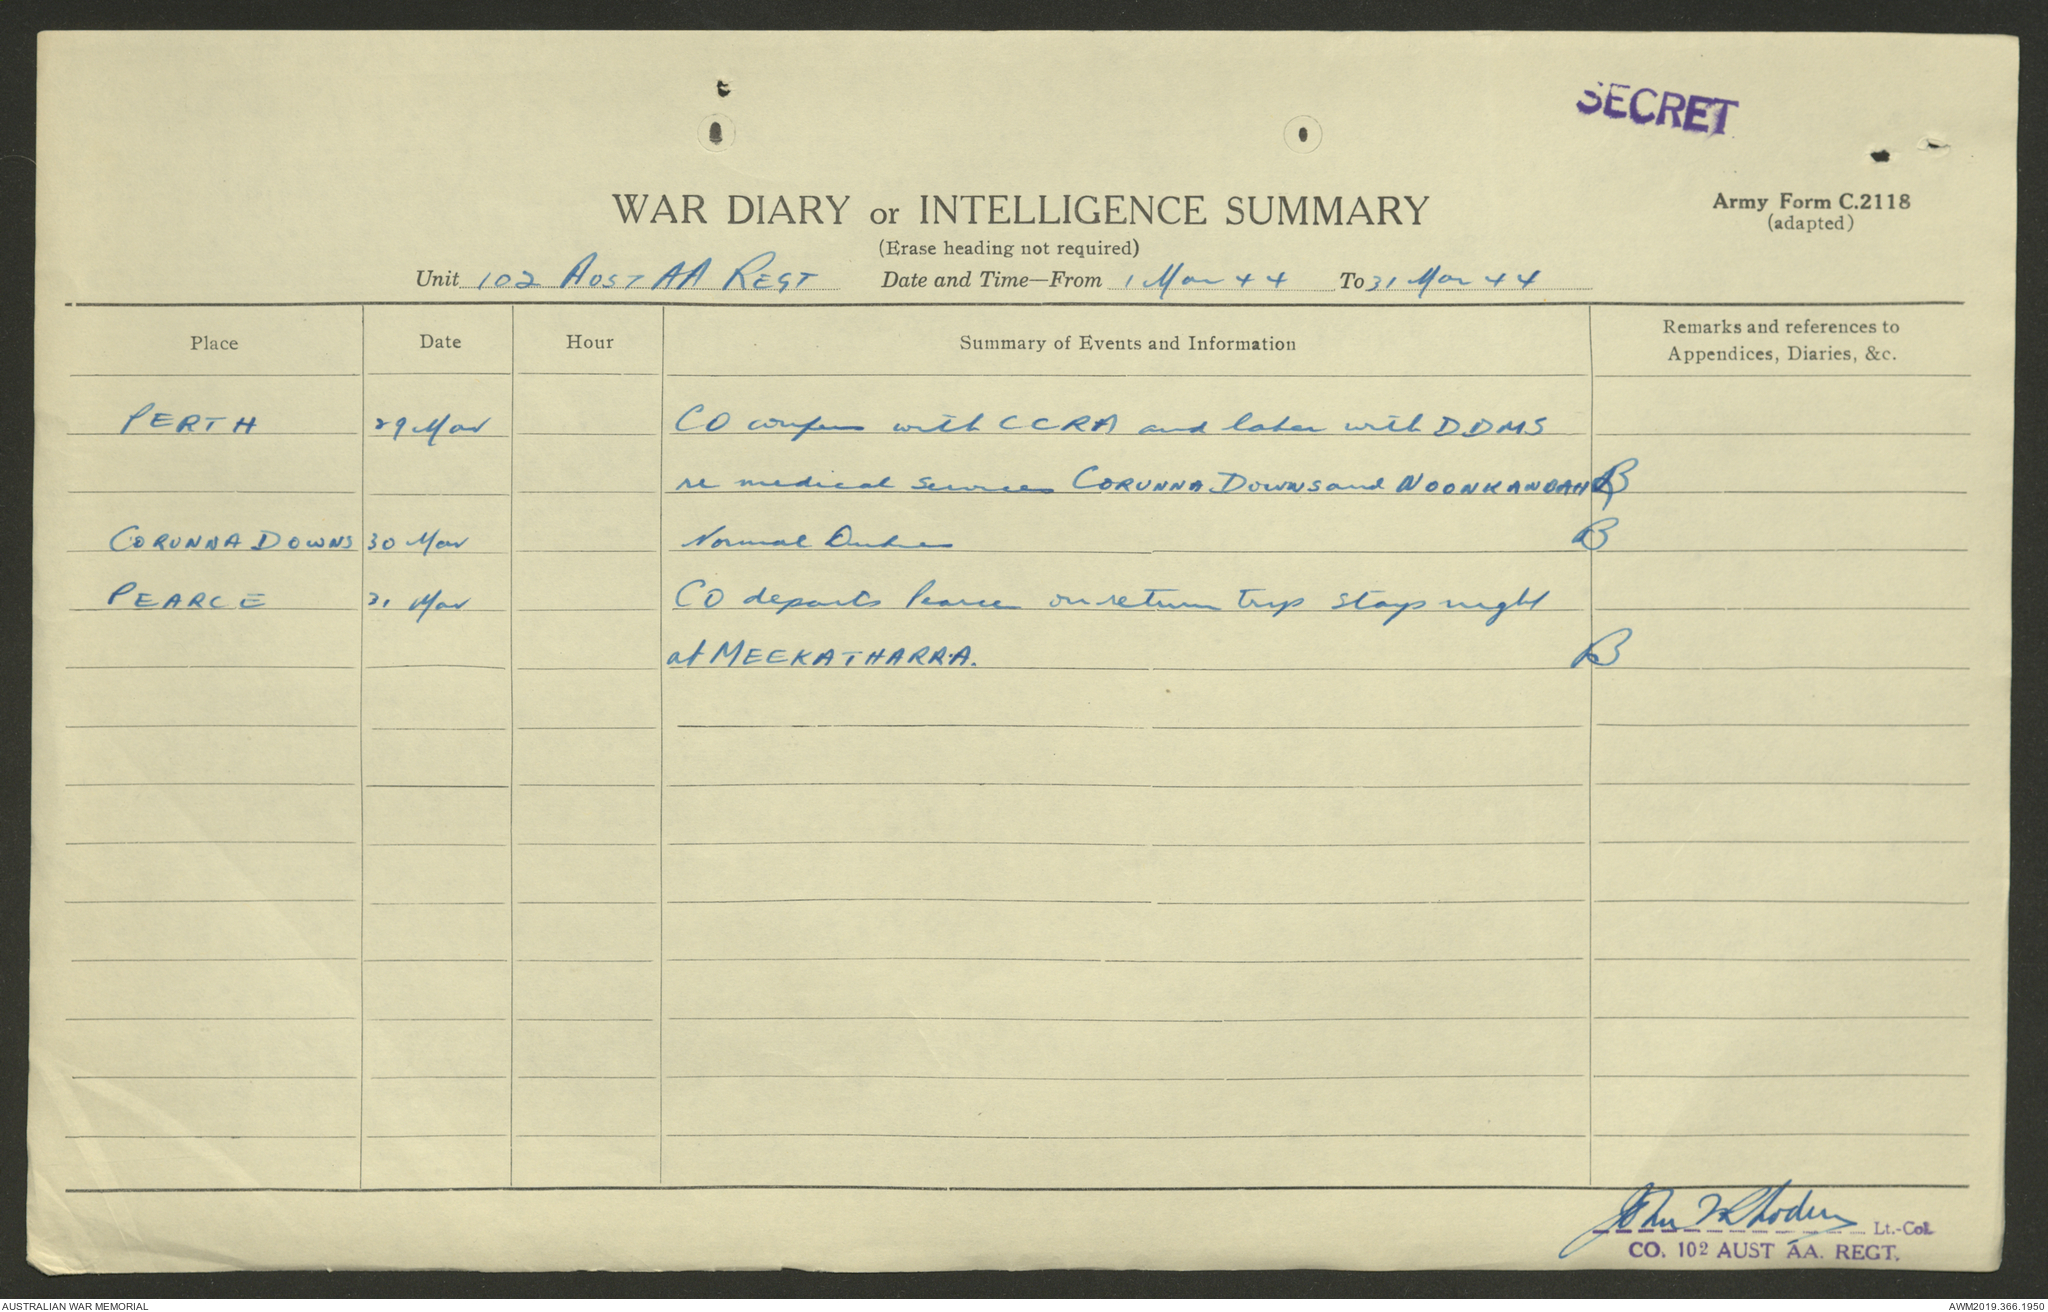 SECRET
WAR DIARY or INTELLIGENCE SUMMARY
Army Form C.2118
(adapted)
(Erase heading not required)
Unit 102 AUST AA REGT Date and Time—From 1 Mar 44 To 31 Mar 44
Place Date Hour Summary of Events and Information Remarks and references to
Appendices, Diaries, &c.
PERTH 29 Mar CO confers with CCRA and later with DDMS
re medical services CORUNNA DOWNS and NOONKANBAH
CORUNNA DOWNS 30 Mar Normal Duties
PEARCE 31 Mar CO departs Pearce on return trip stays night
at MEEKATHARRA.
John Rhoden Lt.-Col.
CO. 102 AUST AA. REGT.
AUSTRALIAN WAR MEMORIAL
AWM2019.366.1950